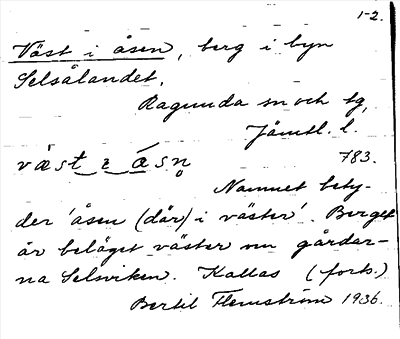 1-2.
Väst i åsen, berg i byn
Selsålandet.
Ragunda sn och tg,
Jämtl. l.
väst i åsn̥ 783.
Namnet bety-
der 'åsen (där) i väster'. Berget
är beläget väster om gårdar-
na Selsviken. Kallas (forts.)
Bertil Flemström 1936.